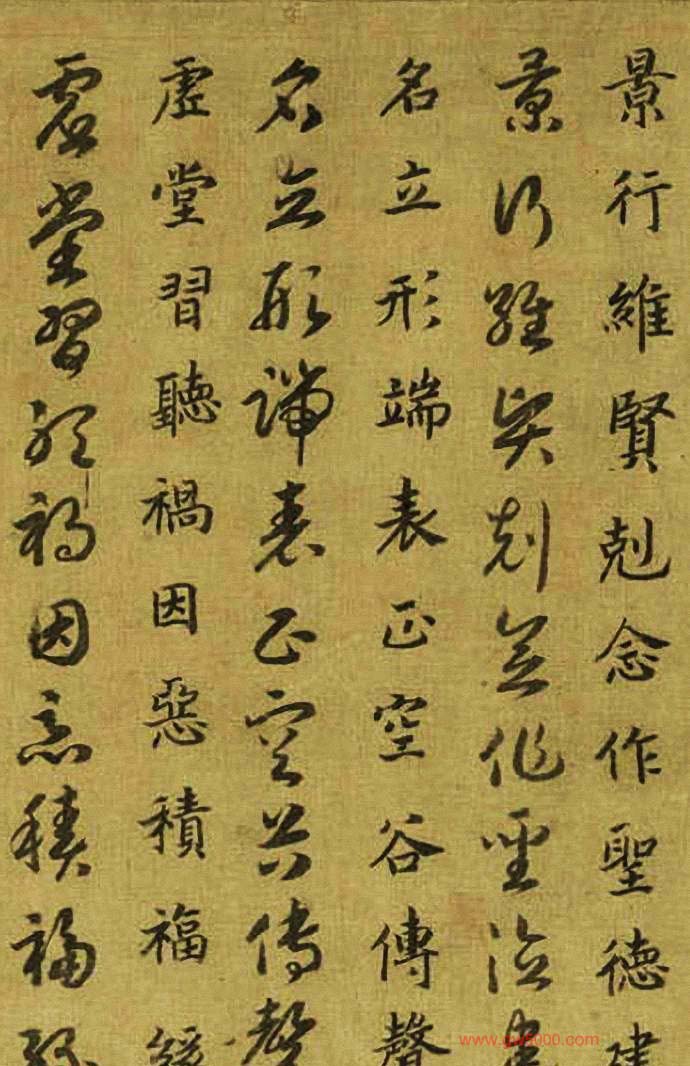 景行維賢剋念作聖德建
景行維賢剋念作聖德建
名立形端表正空谷傳聲
名立形端表正空谷傳聲
虛堂習聽禍因惡積福緣
虛堂習聽禍因惡積福緣